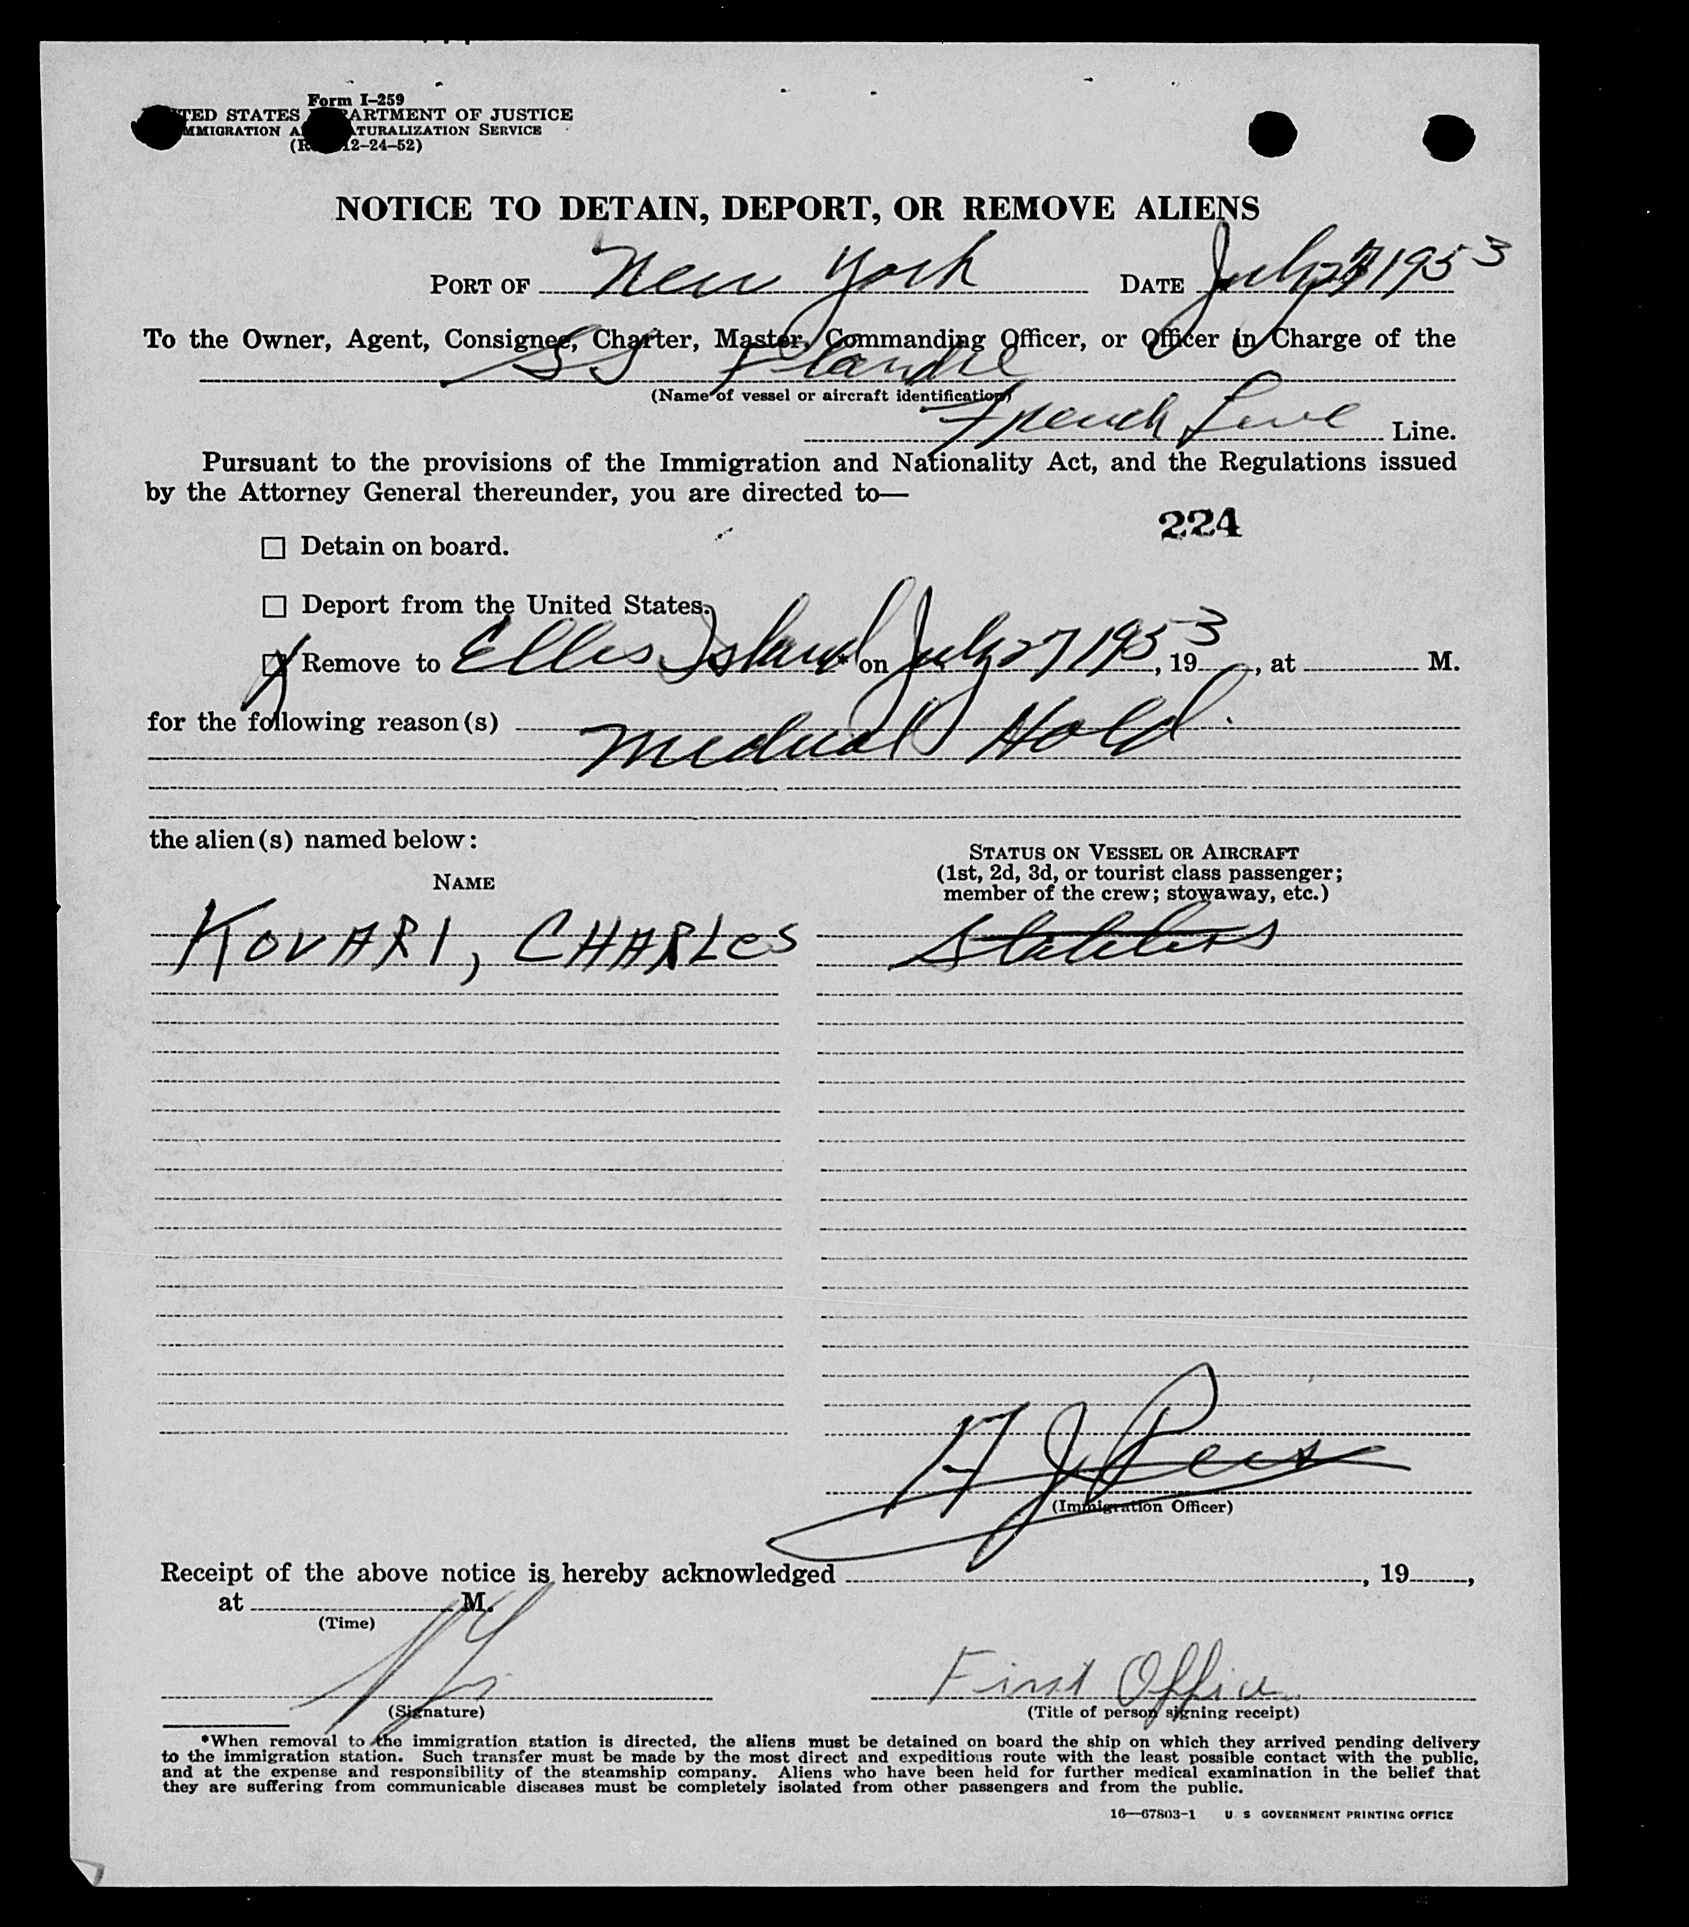 Form I-259
TED STATES ARTMENT OF JUSTICE
MMIGRATION A TURALIZATION SERVICE
(R 12-24-52)
NOTICE TO DETAIN, DEPORT, OR REMOVE ALIENS
PORT OF New York DATE July 27 1953
To the Owner, Agent, Consignee, Charter, Master, Commanding Officer, or Officer in Charge of the
SS Flandre
(Name of vessel or aircraft identification)
French Line Line.
Pursuant to the provisions of the Immigration and Nationality Act, and the Regulations issued
by the Attorney General thereunder, you are directed to—
224
☐ Detain on board.
☐ Deport from the United States.
☒ Remove to Ellis Island * on July 27 1953, 19, at M.
for the following reason(s)
Medical Hold.
the alien(s) named below:
STATUS ON VESSEL OR AIRCRAFT
(1st, 2d, 3d, or tourist class passenger;
member of the crew; stowaway, etc.)
NAME
KOVARI, CHARLES
H J
(Immigration Officer)
Receipt of the above notice is hereby acknowledged , 19 ,
at M.
(Time)
First Office
(Signature) (Title of person signing receipt)
*When removal to the immigration station is directed, the aliens must be detained on board the ship on which they arrived pending delivery
to the immigration station. Such transfer must be made by the most direct and expeditious route with the least possible contact with the public,
and at the expense and responsibility of the steamship company. Aliens who have been held for further medical examination in the belief that
they are suffering from communicable diseases must be completely isolated from other passengers and from the public.
16—67803-1 U S GOVERNMENT PRINTING OFFICE